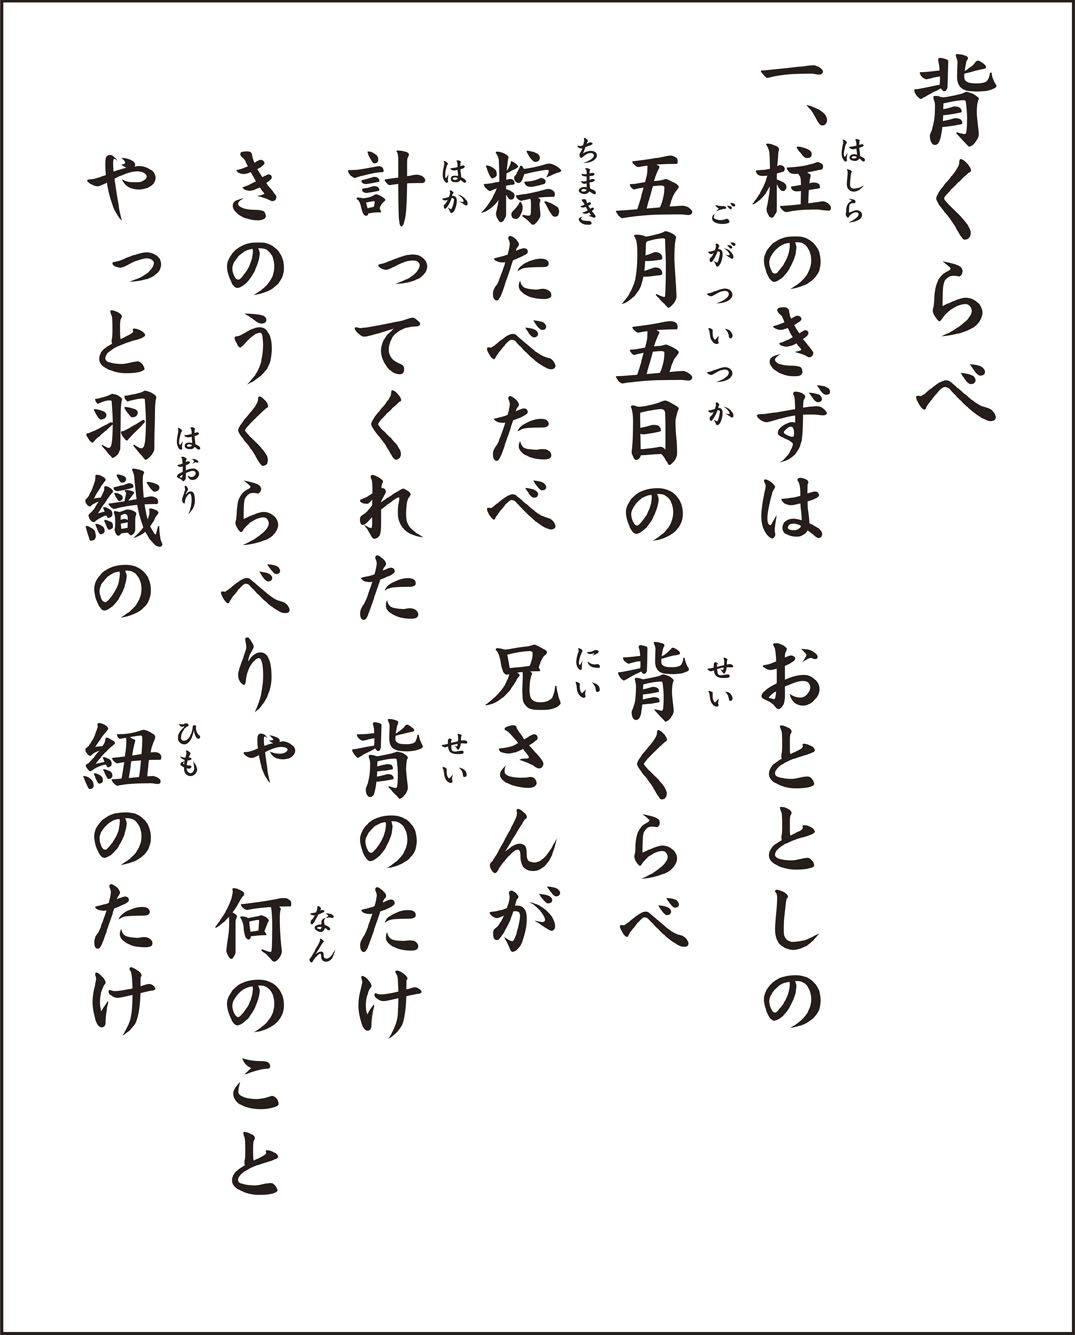 背くらべ
一、柱のきずは　おととしの
はしら
五月五日の　背くらべ
ごがついつか　せい
粽たべたべ　兄さんが
ちまき　にい
計ってくれた　背のたけ
はか　せい
きのうくらべりゃ　何のこと
なん
やっと羽織の　紐のたけ
はおり　ひも